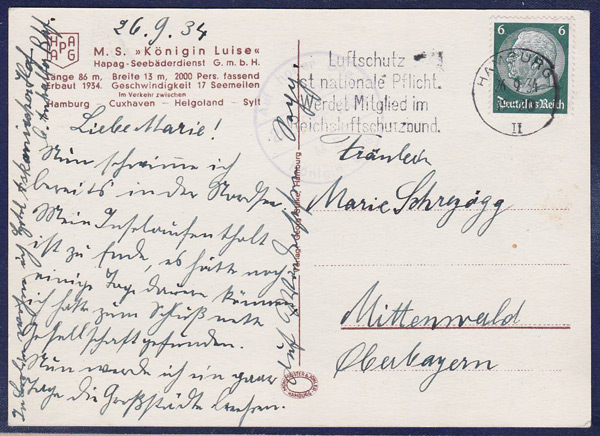 26.9.34
HAPAG
M. S. »Königin Luise«
Hapag-Seebäderdienst G. m. b. H.
Länge 86 m, Breite 13 m, 2000 Pers. fassend
Erbaut 1934. Geschwindigkeit 17 Seemeilen
Im Verkehr zwischen
Hamburg Cuxhaven – Helgoland – Sylt
Liebe Marie!
Nun schwimme ich
bereits in der Nordsee.
Mein Inselaufenthalt
ist zu Ende, es hätte noch
einige Tage dauern können
ich hatte zum Schluß nette
Gesellschaft gefunden.
Nun werde ich ein paar
Tage die Großstädte
Auf Wiedersehen
Luftschutz
ist nationale Pflicht.
Werdet Mitglied im
Reichsluftschutzbund.
HAMBURG
II
6 6
Deutsches Reich
Fräulein
Marie Schrezögg
Mittenwald
Oberbayern